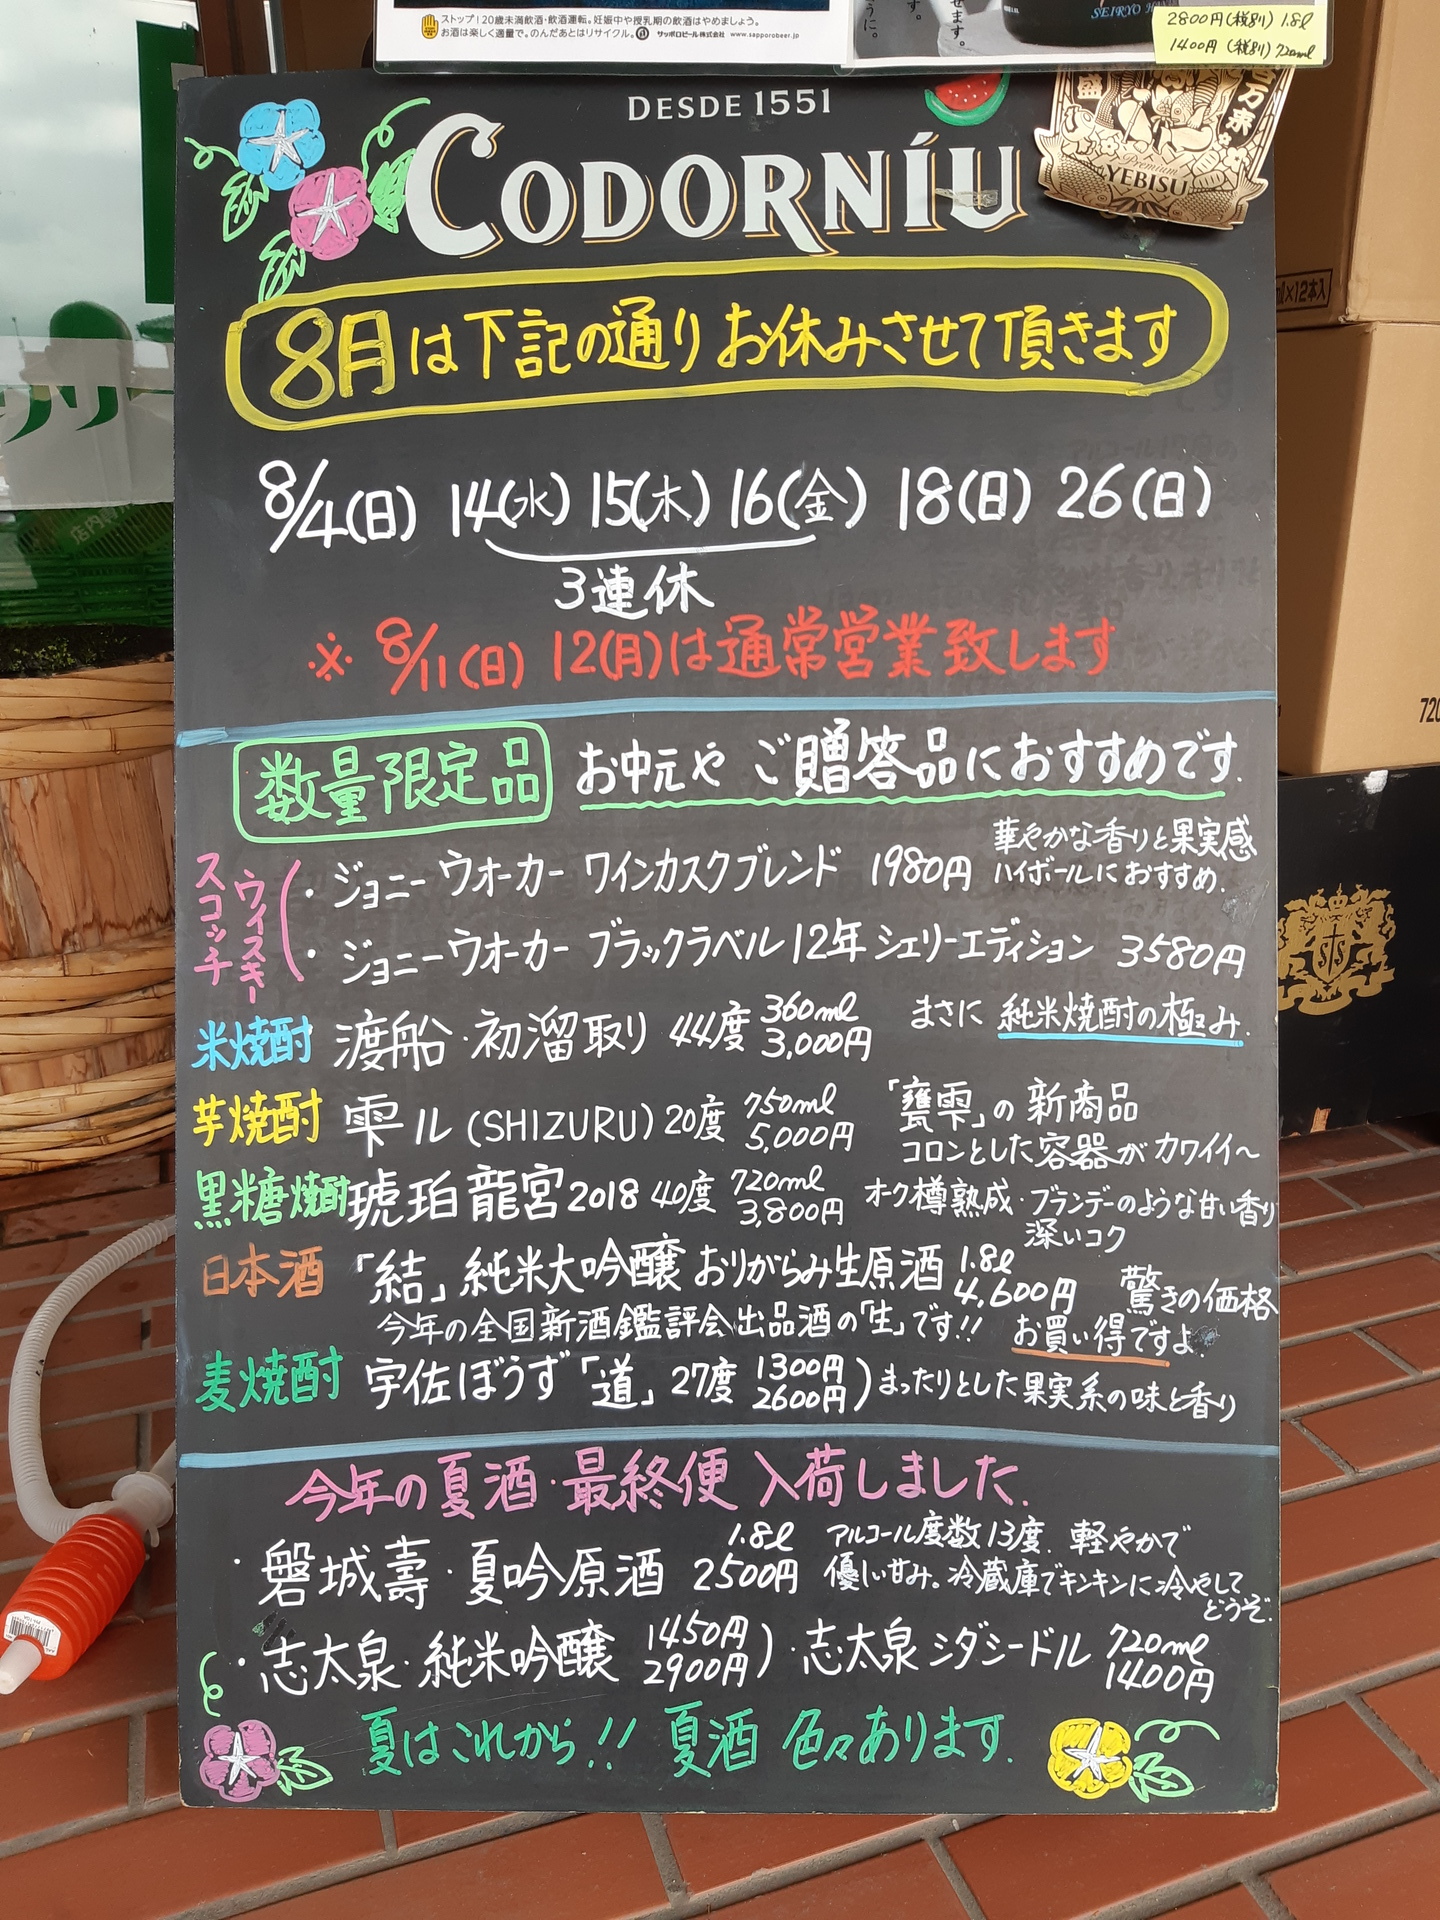 ストップ!20歳未満飲酒・飲酒運転。妊娠中や授乳期の飲酒はやめましょう。
お酒は楽しく適量で。のんだあとはリサイクル。 サッポロビール株式会社 www.sapporobeer.jp
す。
うに。
せます。
SEIRYO
2800円(税別) 1.8ℓ
1400円(税別) 720ml
DESDE 1551
CODORNÍU
百万来
盛
Premium
YEBISU
8月は下記の通りお休みさせて頂きます
8/4(日) 14(水) 15(木) 16(金) 18(日) 26(日)
3連休
※ 8/11(日) 12(月)は通常営業致します
数量限定品 お中元や ご贈答品におすすめです.
スコッチ
ウイスキー
・ジョニーウォーカー ワインカスクブレンド 1980円 華やかな香りと果実感
ハイボールにおすすめ.
・ジョニーウォーカー ブラックラベル12年 シェリーエディション 3580円
米焼酎 渡船・初溜取り 44度 360ml 3,000円 まさに 純米焼酎の極み.
芋焼酎 雫ル(SHIZURU)20度 750ml 5,000円 「甕雫」の新商品
コロンとした容器がカワイイ〜
黒糖焼酎 琥珀龍宮2018 40度 720ml 3,800円 オーク樽熟成・ブランデーのような甘い香り
深いコク
日本酒 「結」純米大吟醸 おりがらみ生原酒 1.8ℓ 4,600円 驚きの価格
今年の全国新酒鑑評会出品酒の「生」です!! お買い得ですよ.
麦焼酎 宇佐ぼうず「道」27度 1300円 2600円) まったりとした果実系の味と香り
今年の夏酒・最終便 入荷しました.
・磐城壽・夏吟原酒 1.8ℓ 2500円 アルコール度数13度. 軽やかで
優しい甘み。冷蔵庫でキンキンに冷やして
どうぞ.
・志太泉・純米吟醸 1450円 2900円) ・志太泉 シダシードル 720ml 1400円
夏はこれから!! 夏酒 色々あります.
ml×12本入
720